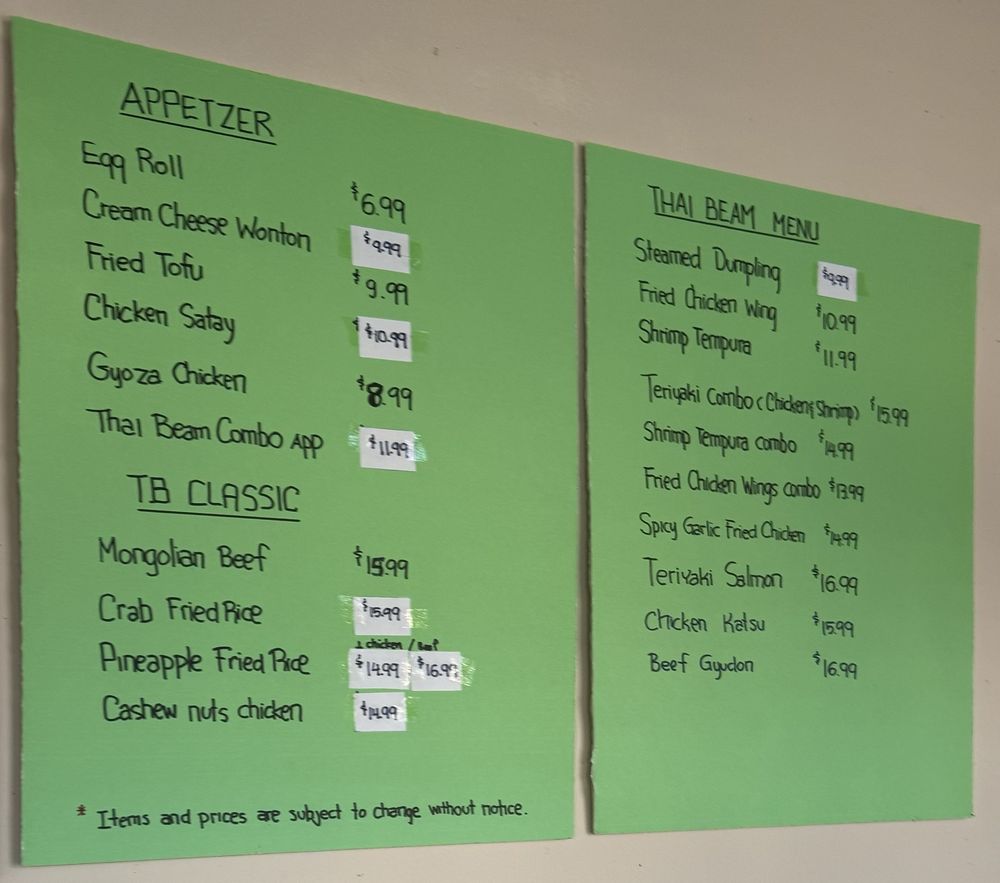 APPETZER
Egg Roll $6.99
Cream Cheese Wonton $9.99
Fried Tofu $9.99
Chicken Satay $10.99
Gyoza Chicken $8.99
Thai Beam Combo App $11.99
TB CLASSIC
Mongolian Beef $15.99
Crab Fried Rice $15.99
chicken / Beef
Pineapple Fried Rice $14.99 $16.99
Cashew nuts chicken $14.99
* Items and prices are subject to change without notice.
THAI BEAM MENU
Steamed Dumpling $9.99
Fried Chicken Wing $10.99
Shrimp Tempura $11.99
Teriyaki Combo (Chicken & Shrimp) $15.99
Shrimp Tempura combo $14.99
Fried Chicken Wings combo $13.99
Spicy Garlic Fried Chicken $14.99
Teriyaki Salmon $16.99
Chicken Katsu $15.99
Beef Gyudon $16.99